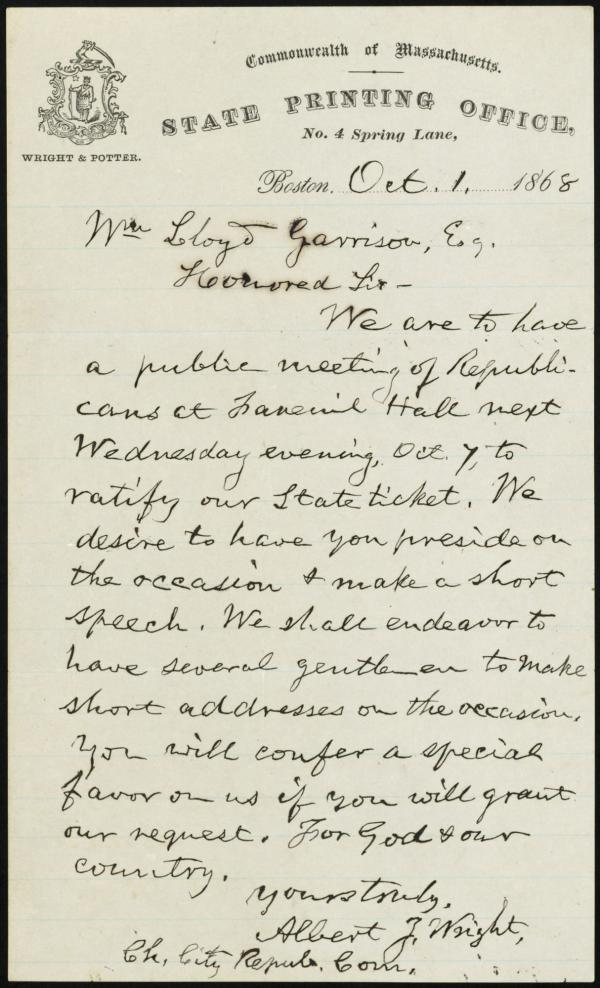 Commonwealth of Massachusetts.
STATE PRINTING OFFICE,
No. 4 Spring Lane,
WRIGHT & POTTER.
Boston, Oct. 1. 1868
Wm Lloyd Garrison, Esq.
Honored Sir -
We are to have
a public meeting of Republi-
cans at Faneuil Hall next
Wednesday evening, Oct. 7, to
ratify our State ticket. We
desire to have you preside on
the occasion & make a short
speech. We shall endeavor to
have several gentlemen to make
short addresses on the occasion.
You will confer a special
favor on us if you will grant
our request. For God & our
country.
Yours truly,
Albert J. Wright,
Ch. City Repub. Com.